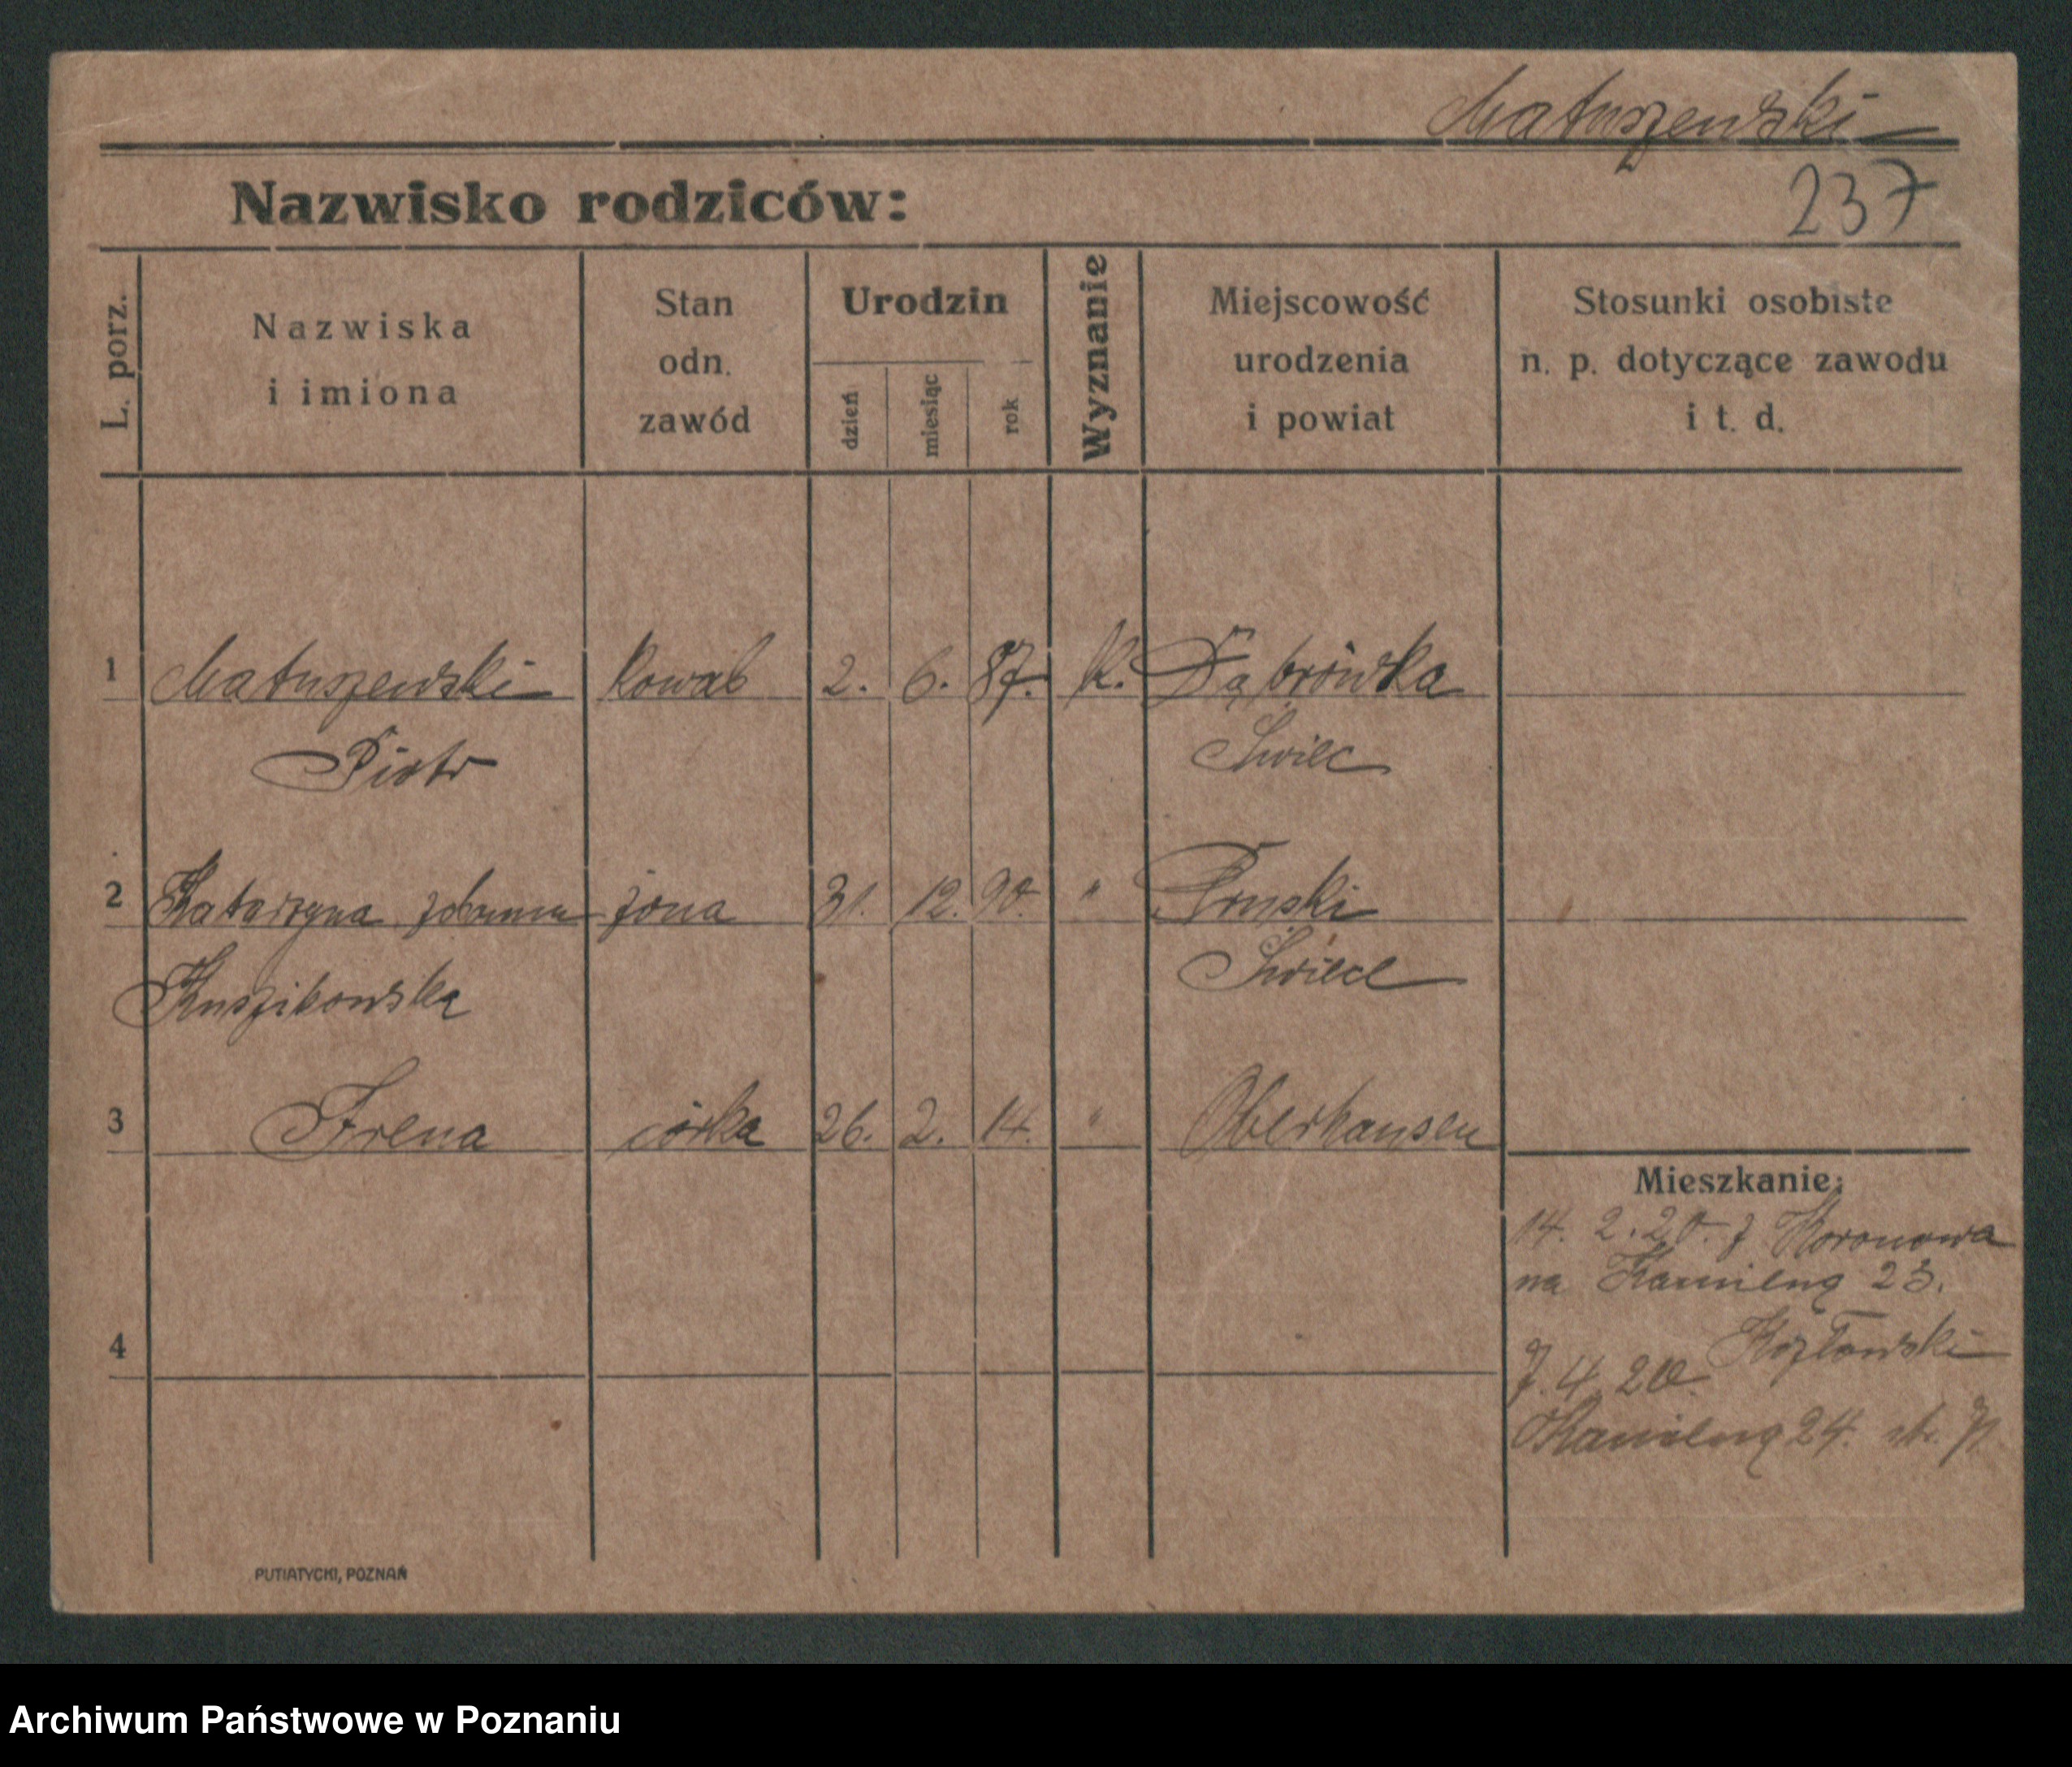 Matuszewski
237
Nazwisko rodziców:
L. porz.
Nazwiska
i imiona
Stan
odn.
zawód
Urodzin
dzień
miesiąc
rok
Wyznanie
Miejscowość
urodzenia
i powiat
Stosunki osobiste
n. p. dotyczące zawodu
i t. d.
1 Matuszewski kowal 2. 6. 87. k. Dąbrówka
Piotr Świec
2 Katarzyna żona 31. 12. 90. "
Świec
3 Irena córka 26. 2. 14. " Oberhausen
Mieszkanie:
14. 2. 20. z Koronowa
na 23.
4
Kozłowski
7. 4. 20.
24.
PUTIATYCKI, POZNAŃ
Archiwum Państwowe w Poznaniu